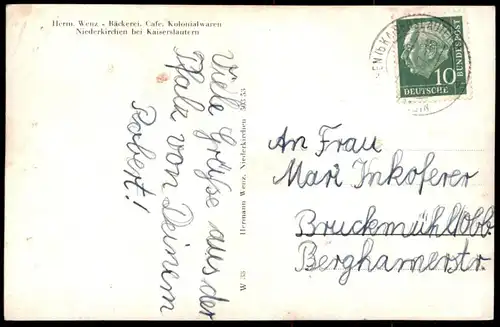 Herm. Wenz - Bäckerei, Cafe, Kolonialwaren
Niederkirchen bei Kaiserslautern
Viele Grüße aus der
Pfalz von Deinem
Robert!
W 35 Hermann Wenz, Niederkirchen 50353
10
DEUTSCHE
BUNDESPOST
An Frau
Mari Inkoferer
Bruckmühl/Obb
Berghamerstr.